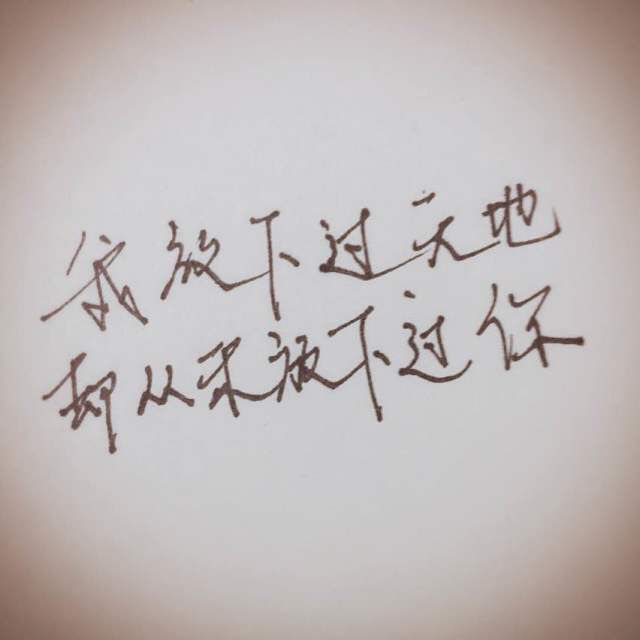 我放下过天地
却从未放下过你